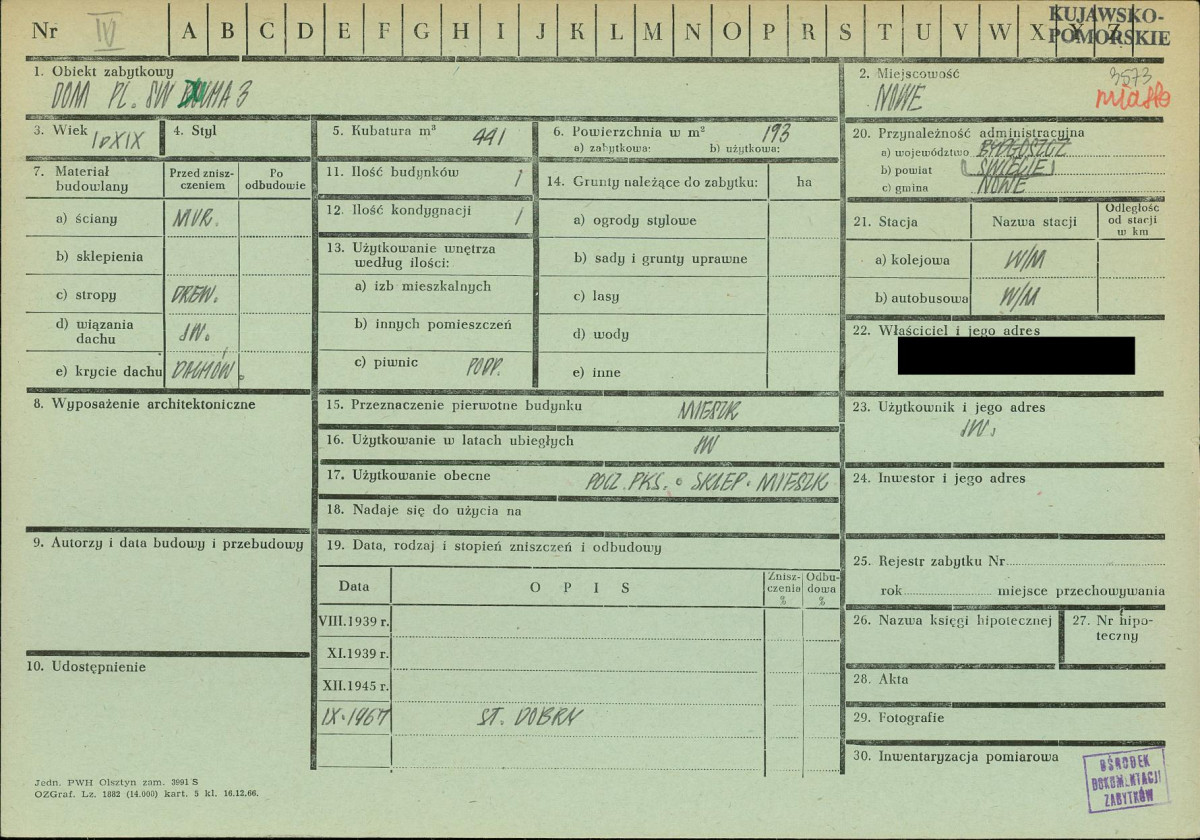 Nr IV A B C D E F G H I J K L M N O P R S T U V W X Y Z
KUJAWSKO-
POMORSKIE
1. Obiekt zabytkowy
DOM PL. SW DUCHA 3
2. Miejscowość
3573
NOWE
miasto
3. Wiek
XIX
4. Styl
5. Kubatura m³ 441
6. Powierzchnia w m² 193
a) zabytkowa: b) użytkowa:
7. Materiał
budowlany
Przed znisz-
czeniem
Po
odbudowie
a) ściany MUR.
b) sklepienia
c) stropy DREW.
d) wiązania
dachu JW.
e) krycie dachu DACHÓW.
11. Ilość budynków 1
12. Ilość kondygnacji 1
13. Użytkowanie wnętrza
według ilości:
a) izb mieszkalnych
b) innych pomieszczeń
c) piwnic PODP.
14. Grunty należące do zabytku: ha
a) ogrody stylowe
b) sady i grunty uprawne
c) lasy
d) wody
e) inne
20. Przynależność administracyjna
a) województwo BYDGOSZCZ
b) powiat ŚWIECIE
c) gmina NOWE
21. Stacja
Nazwa stacji
Odległość
od stacji
w km
a) kolejowa W/M
b) autobusowa W/M
22. Właściciel i jego adres
8. Wyposażenie architektoniczne
15. Przeznaczenie pierwotne budynku MIESZK
16. Użytkowanie w latach ubiegłych JW
17. Użytkowanie obecne POCZ. PKS. SKLEP. MIESZK
18. Nadaje się do użycia na
23. Użytkownik i jego adres
JW.
24. Inwestor i jego adres
9. Autorzy i data budowy i przebudowy
19. Data, rodzaj i stopień zniszczeń i odbudowy
Data
O P I S
Znisz-
czenia
%
Odbu-
dowa
%
VIII.1939 r.
XI.1939 r.
XII.1945 r.
IX.1967 ST. DOBRY
10. Udostępnienie
25. Rejestr zabytku Nr
rok miejsce przechowywania
26. Nazwa księgi hipotecznej
27. Nr hipo-
teczny
28. Akta
29. Fotografie
30. Inwentaryzacja pomiarowa
OŚRODEK
DOKUMENTACJI
ZABYTKÓW
Jedn. PWH Olsztyn zam. 3991 S
OZGraf. Lz. 1882 (14.000) kart. 5 kl. 16.12.66.